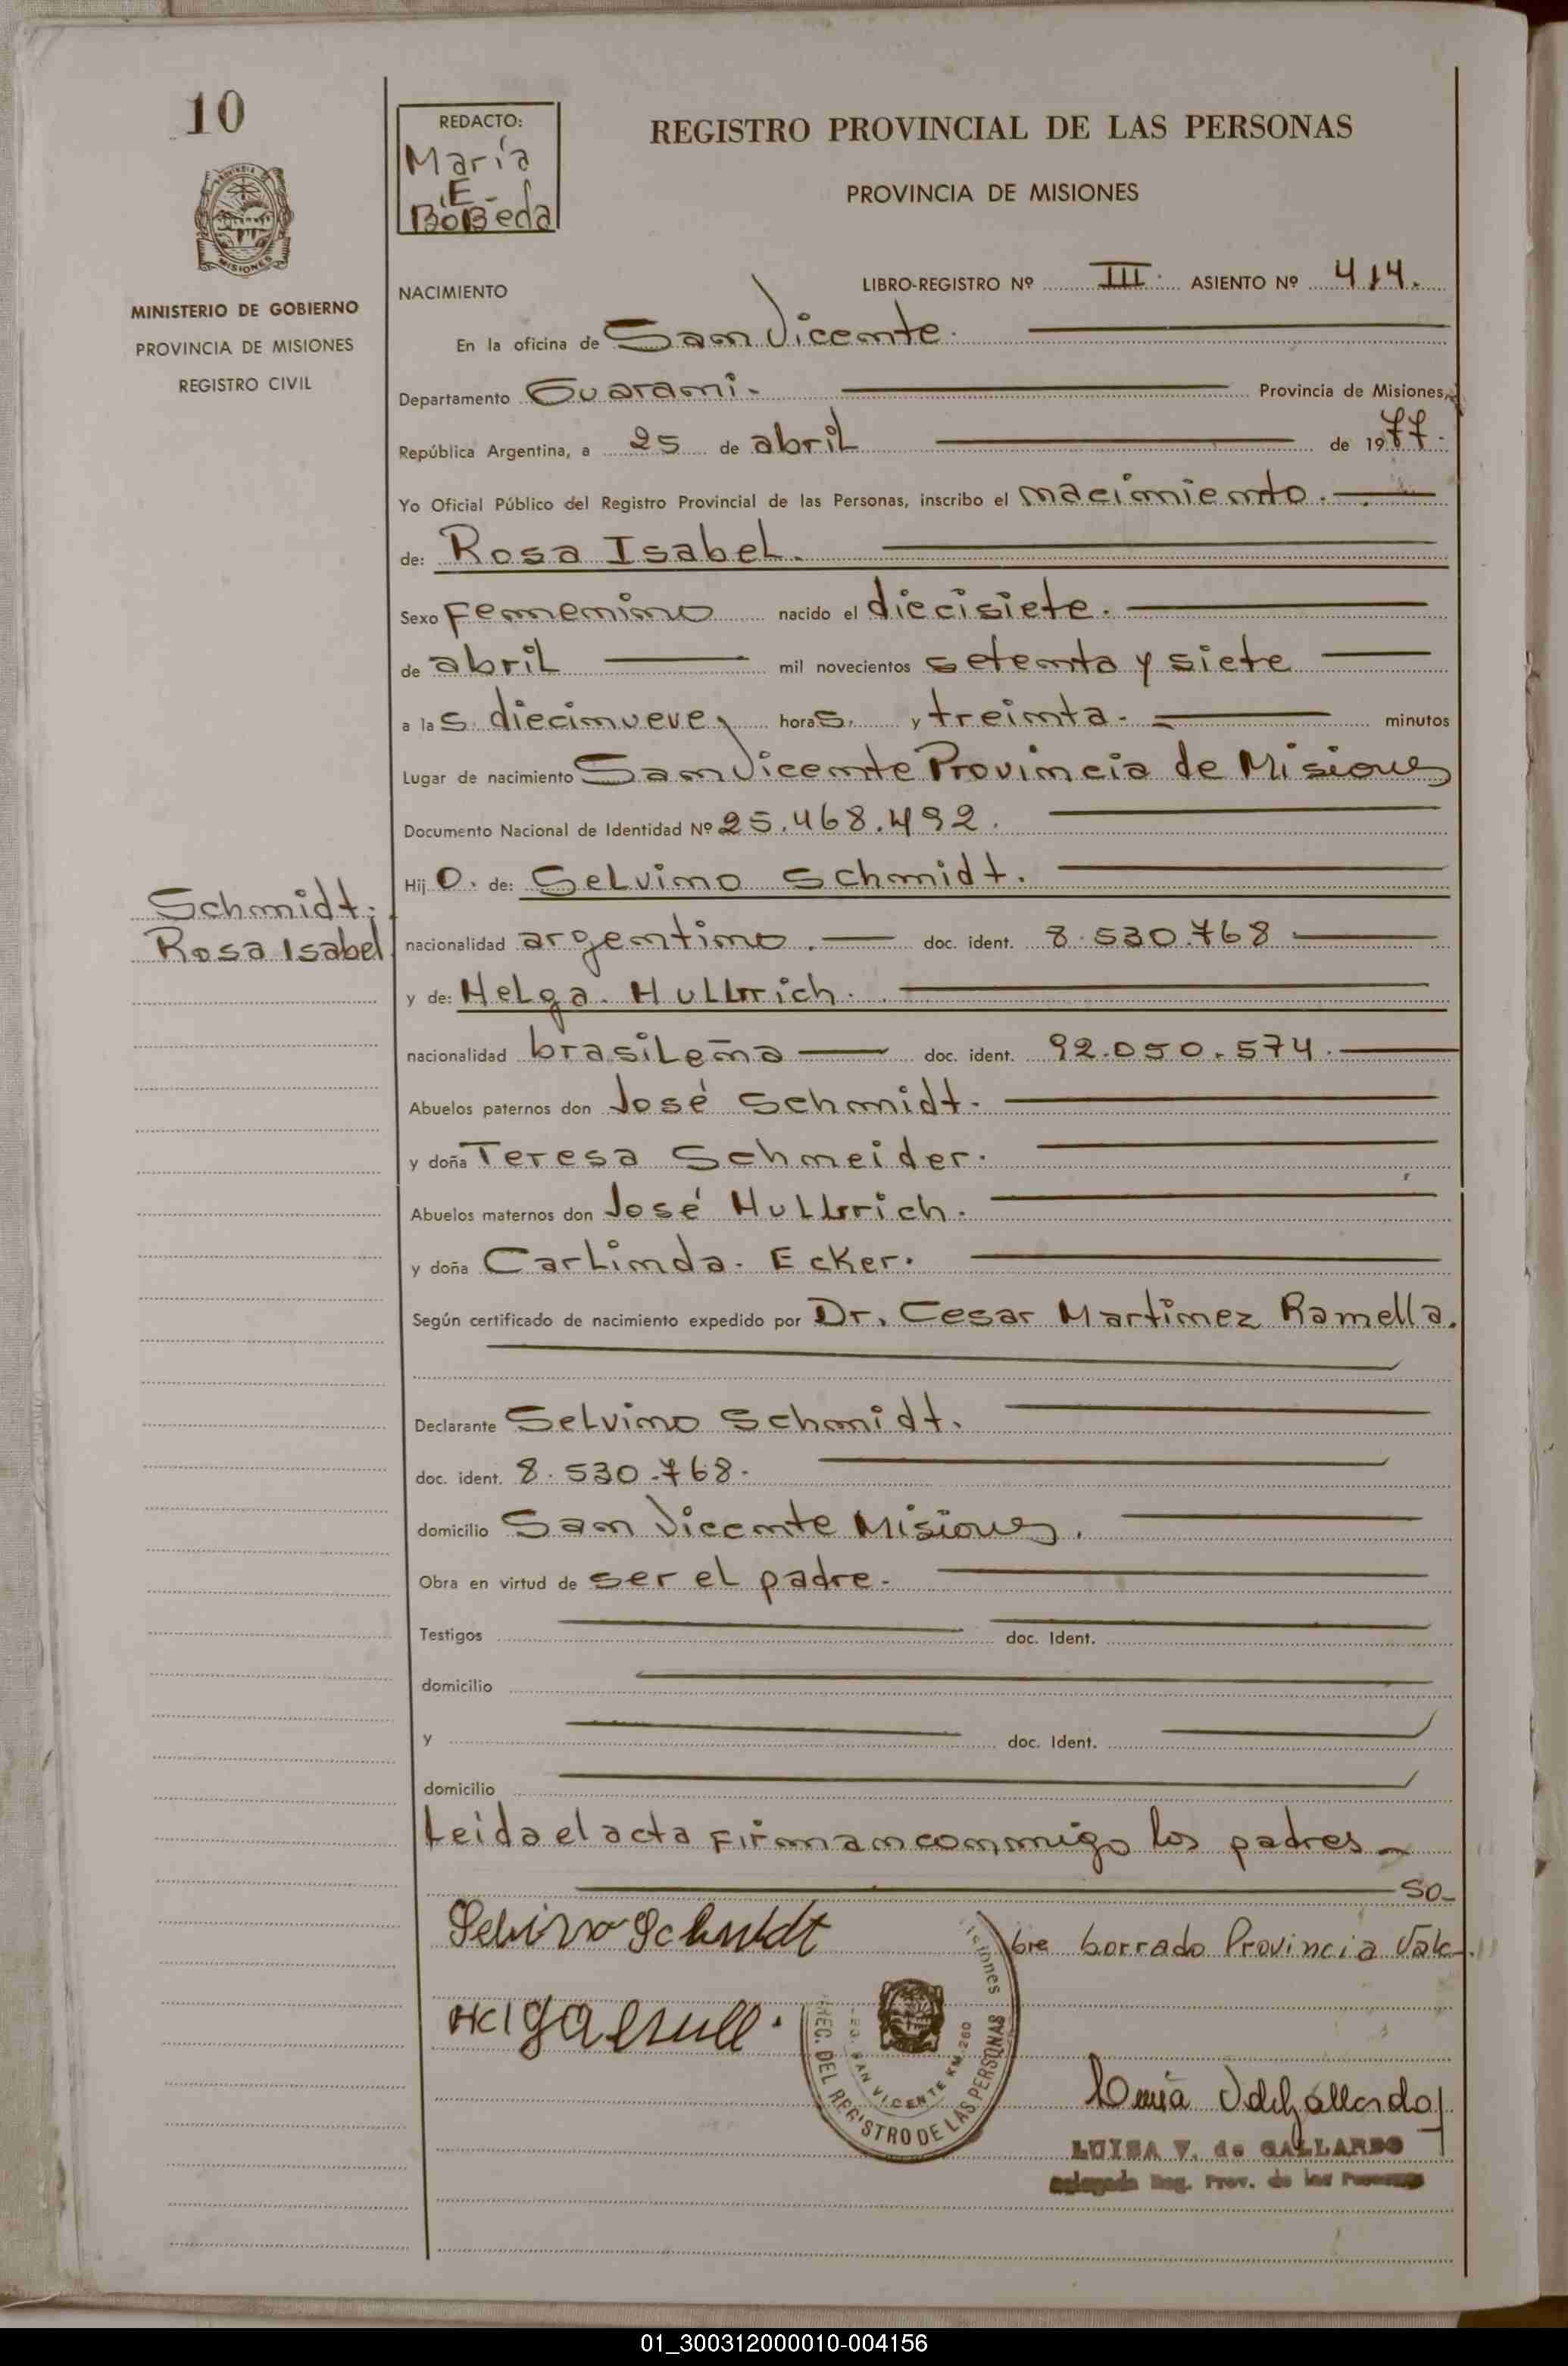 10
MINISTERIO DE GOBIERNO
PROVINCIA DE MISIONES
REGISTRO CIVIL
REDACTO:
María
E.
BoBeda
REGISTRO PROVINCIAL DE LAS PERSONAS
PROVINCIA DE MISIONES
NACIMIENTO
LIBRO-REGISTRO Nº III. ASIENTO Nº 414.
En la oficina de San Vicente.
Departamento Guarani. Provincia de Misiones,
República Argentina, a 25 de abril de 1977.
Yo Oficial Público del Registro Provincial de las Personas, inscribo el nacimiento.
de: Rosa Isabel.
Sexo Femenino nacido el diecisiete.
de abril mil novecientos setenta y siete
a las diecinueve, horas. y treinta. minutos
Lugar de nacimiento San Vicente Provincia de Misiones
Documento Nacional de Identidad Nº 25.468.492.
Hijo. de: Selvino Schmidt.
Schmidt.
Rosa Isabel
nacionalidad argentino. doc. ident. 8.530.768
y de: Helga. Hullrich.
nacionalidad brasileña doc. ident. 92.050.574.
Abuelos paternos don José Schmidt.
y doña Teresa Schneider.
Abuelos maternos don José Hullrich.
y doña Carlinda. Ecker.
Según certificado de nacimiento expedido por Dr. Cesar Martinez Ramella.
Declarante Selvino Schmidt.
doc. ident. 8.530.768.
domicilio San Vicente Misiones.
Obra en virtud de ser el padre.
Testigos doc. Ident.
domicilio
y doc. Ident.
domicilio
Leida el acta firman conmigo los padres
So-
bre borrado Provincia Vale.
Selvino Schmidt
MISIONES
SAN VICENTE KM. 260
DEL REGISTRO DE LAS PERSONAS
LUISA V. de GALLARDO
Delegada Reg. Prov. de las Personas
01_300312000010-004156